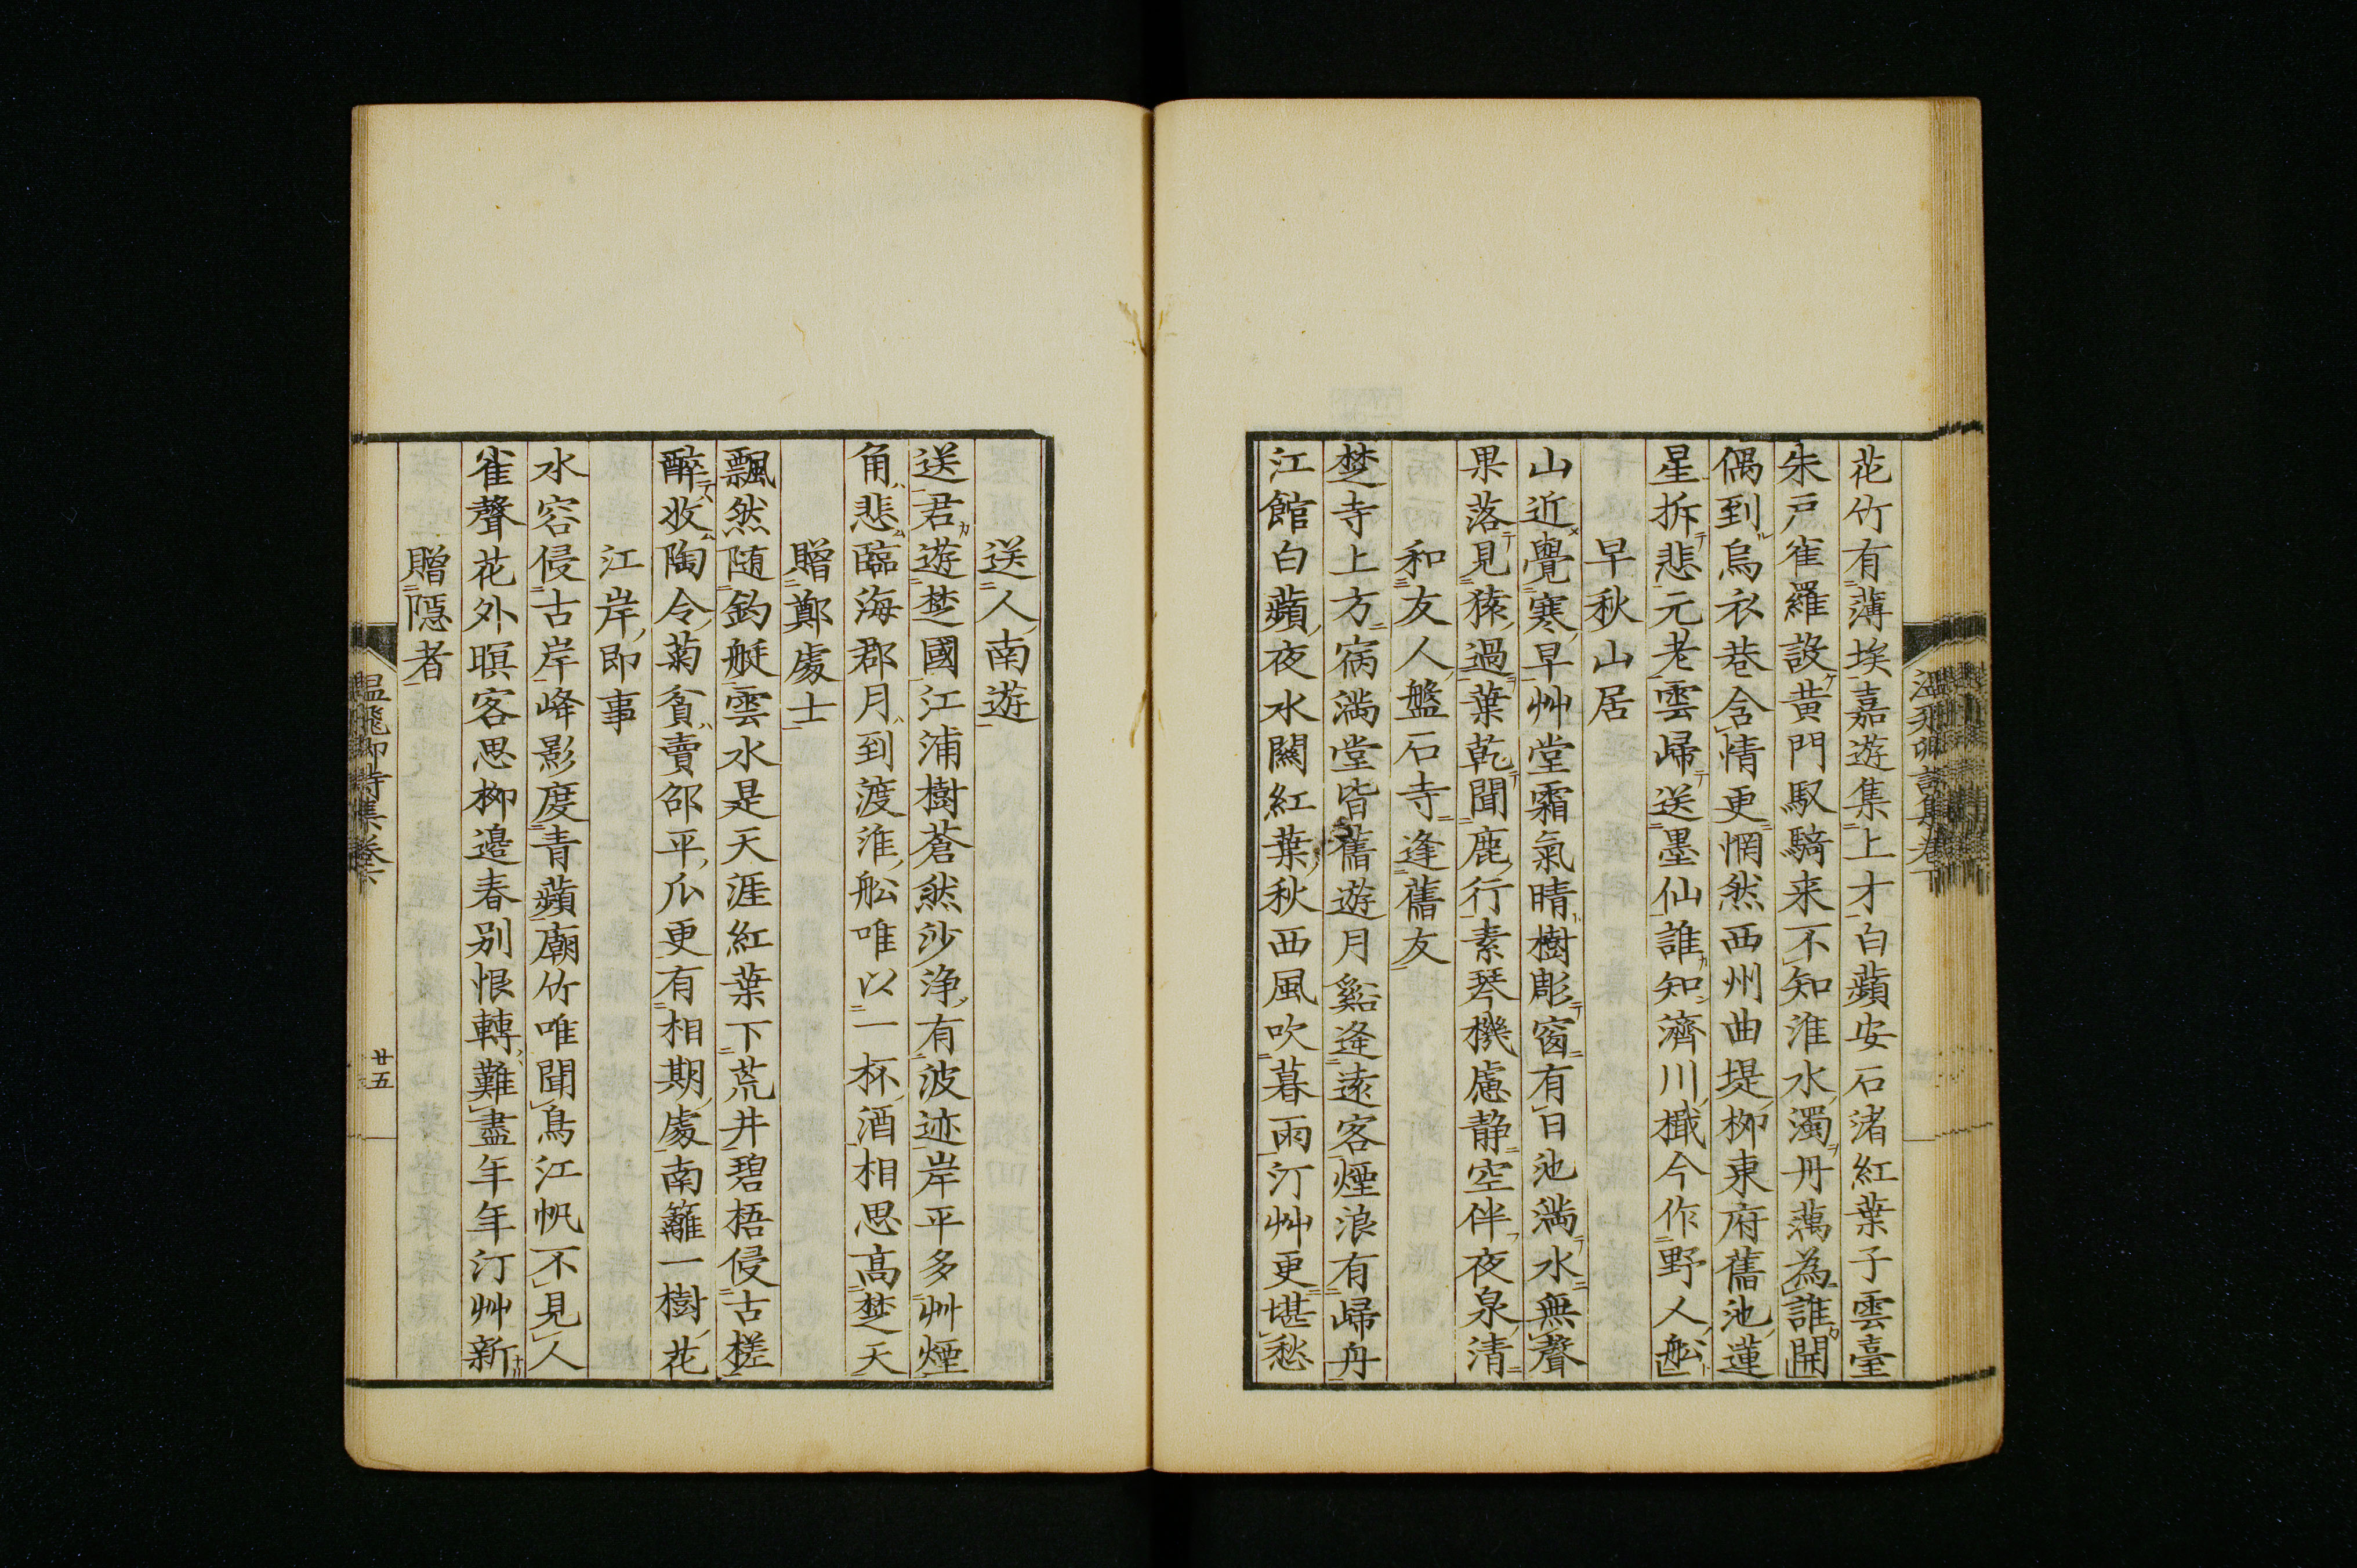 花竹有薄埃嘉遊集上才白蘋安石渚紅葉子雲臺
朱戸雀羅設黃門馭騎来不知淮水濁丹藕為誰開
偶到烏衣巷含情更惘然西州曲堤柳東府舊池蓮
星拆悲元老雲歸送墨仙誰知濟川檝今作野人船
早秋山居
山近覺寒早艸堂霜氣晴樹彫窗有日池満水無聲
果落見猿過葉乾聞鹿行素琴機慮静空伴夜泉清
和友人盤石寺逢舊友
楚寺上方宿満堂皆舊遊月谿逢遠客煙浪有歸舟
江館白蘋夜水關紅葉秋西風吹暮雨汀艸更堪愁
送人南遊
送君遊楚國江浦樹蒼然沙浄有波迹岸平多艸煙
角悲臨海郡月到渡淮船唯以一杯酒相思高楚天
贈鄭處士
飄然随釣艇雲水是天涯紅葉下荒井碧梧侵古槎
醉收陶令菊貧賣邵平瓜更有相期處南籬一樹花
江岸即事
水容侵古岸峰影度青蘋廟竹唯聞鳥江帆不見人
雀聲花外暝客思柳邉春别恨轉難盡年年汀艸新
贈隠者
温飛卿詩集卷下
廿五